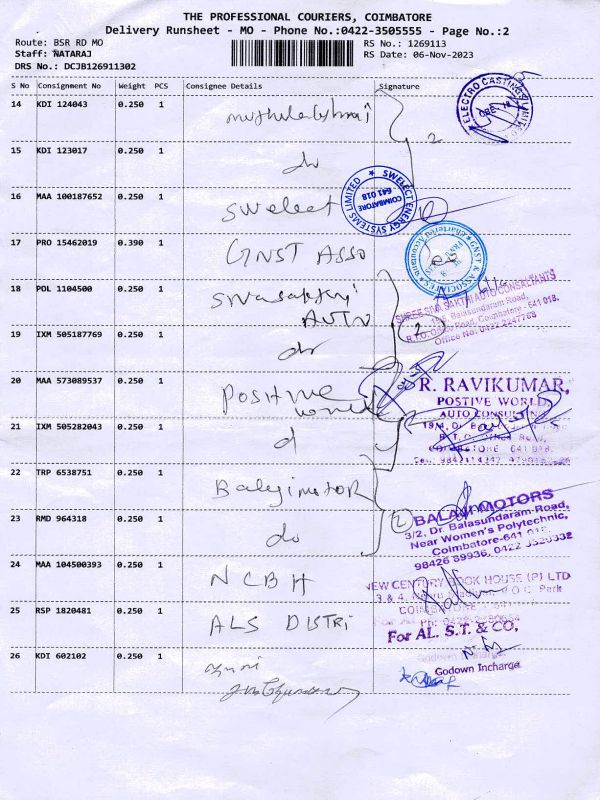 THE PROFESSIONAL COURIERS, COIMBATORE
Delivery Runsheet - MO - Phone No.:0422-3505555 - Page No.:2
Route: BSR RD MO
RS No.: 1269113
Staff: NATARAJ
RS Date: 06-Nov-2023
DRS No.: DCJB126911302
S No Consignment No Weight PCS Consignee Details Signature
14 KDI 124043 0.250 1
ELECTRO CASTINGS LIMITED
CBE-18
2
15 KDI 123017 0.250 1 do
16 MAA 100187652 0.250 1 Swelect
SWELECT ENERGY SYSTEMS LIMITED
COIMBATORE
641 018
17 PRO 15462019 0.390 1 GNST ASSO
GNST & ASSOCIATES
Chartered Accountants
18 POL 1104500 0.250 1 Swasakthi
AUTO
SHREE SIVA SAKTHI AUTO CONSULTANTS
Balasundaram Road,
R.T.O. Office Road, Coimbatore - 641 018.
Office No: 0422 2247768
2
19 IXM 505187769 0.250 1 do
20 MAA 573089537 0.250 1 Positive
world
R. RAVIKUMAR,
POSTIVE WORLD
AUTO CONSULTING
21 IXM 505282043 0.250 1 d
22 TRP 6538751 0.250 1 Balaji motor
2
BALAJI MOTORS
3/2, Dr. Balasundaram Road,
Near Women's Polytechnic,
Coimbatore-641 018
23 RMD 964318 0.250 1 do
24 MAA 104500393 0.250 1 NCBH
NEW CENTURY BOOK HOUSE (P) LTD
25 RSP 1820481 0.250 1 ALS DISTRI
For AL. S.T. & CO,
Godown Incharge
26 KDI 602102 0.250 1